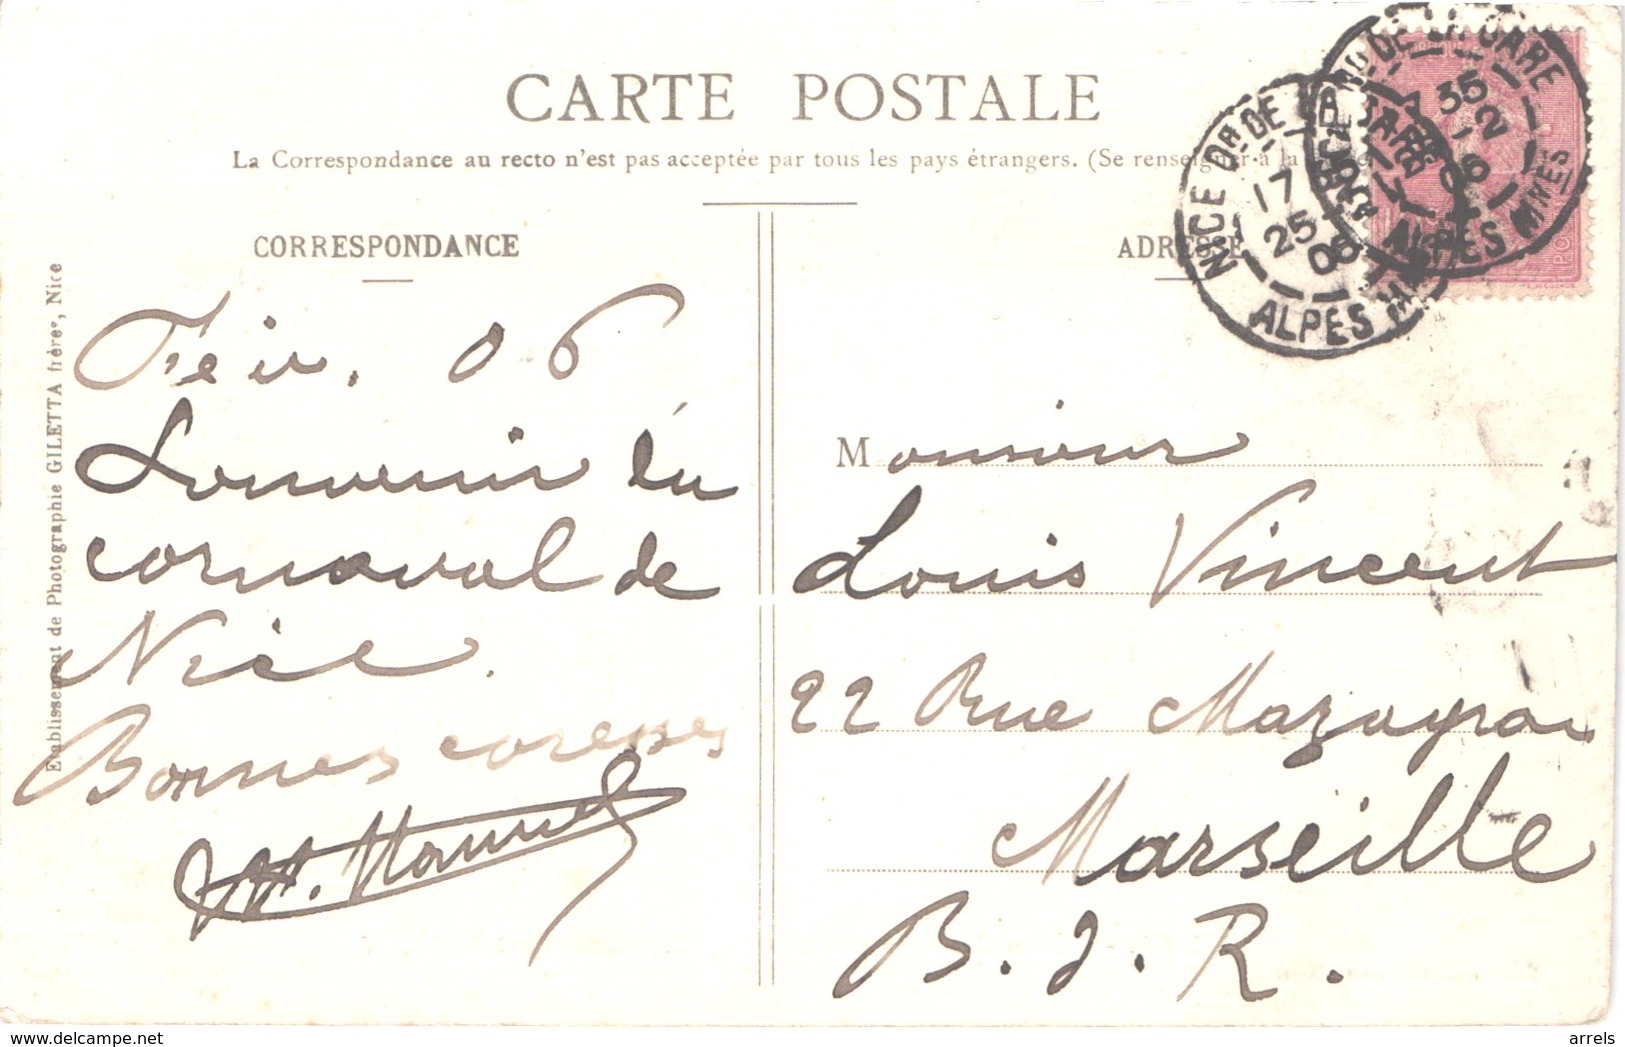 CARTE POSTALE
La Correspondance au recto n'est pas acceptée par tous les pays étrangers. (Se renseigner à la
CORRESPONDANCE
Fév. 06
Souvenir du
carnaval de
Nice.
Bonnes
Etablissement de Photographie GILETTA frères, Nice
ADRESSE
Monsieur
Louis Vincent
22 Rue Mazagran
Marseille
B. d. R.
NICE Dt DE LA GARE
17
25
06
ALPES MMES
DE LA GARE
35
2
06
ALPES MMES
arrels